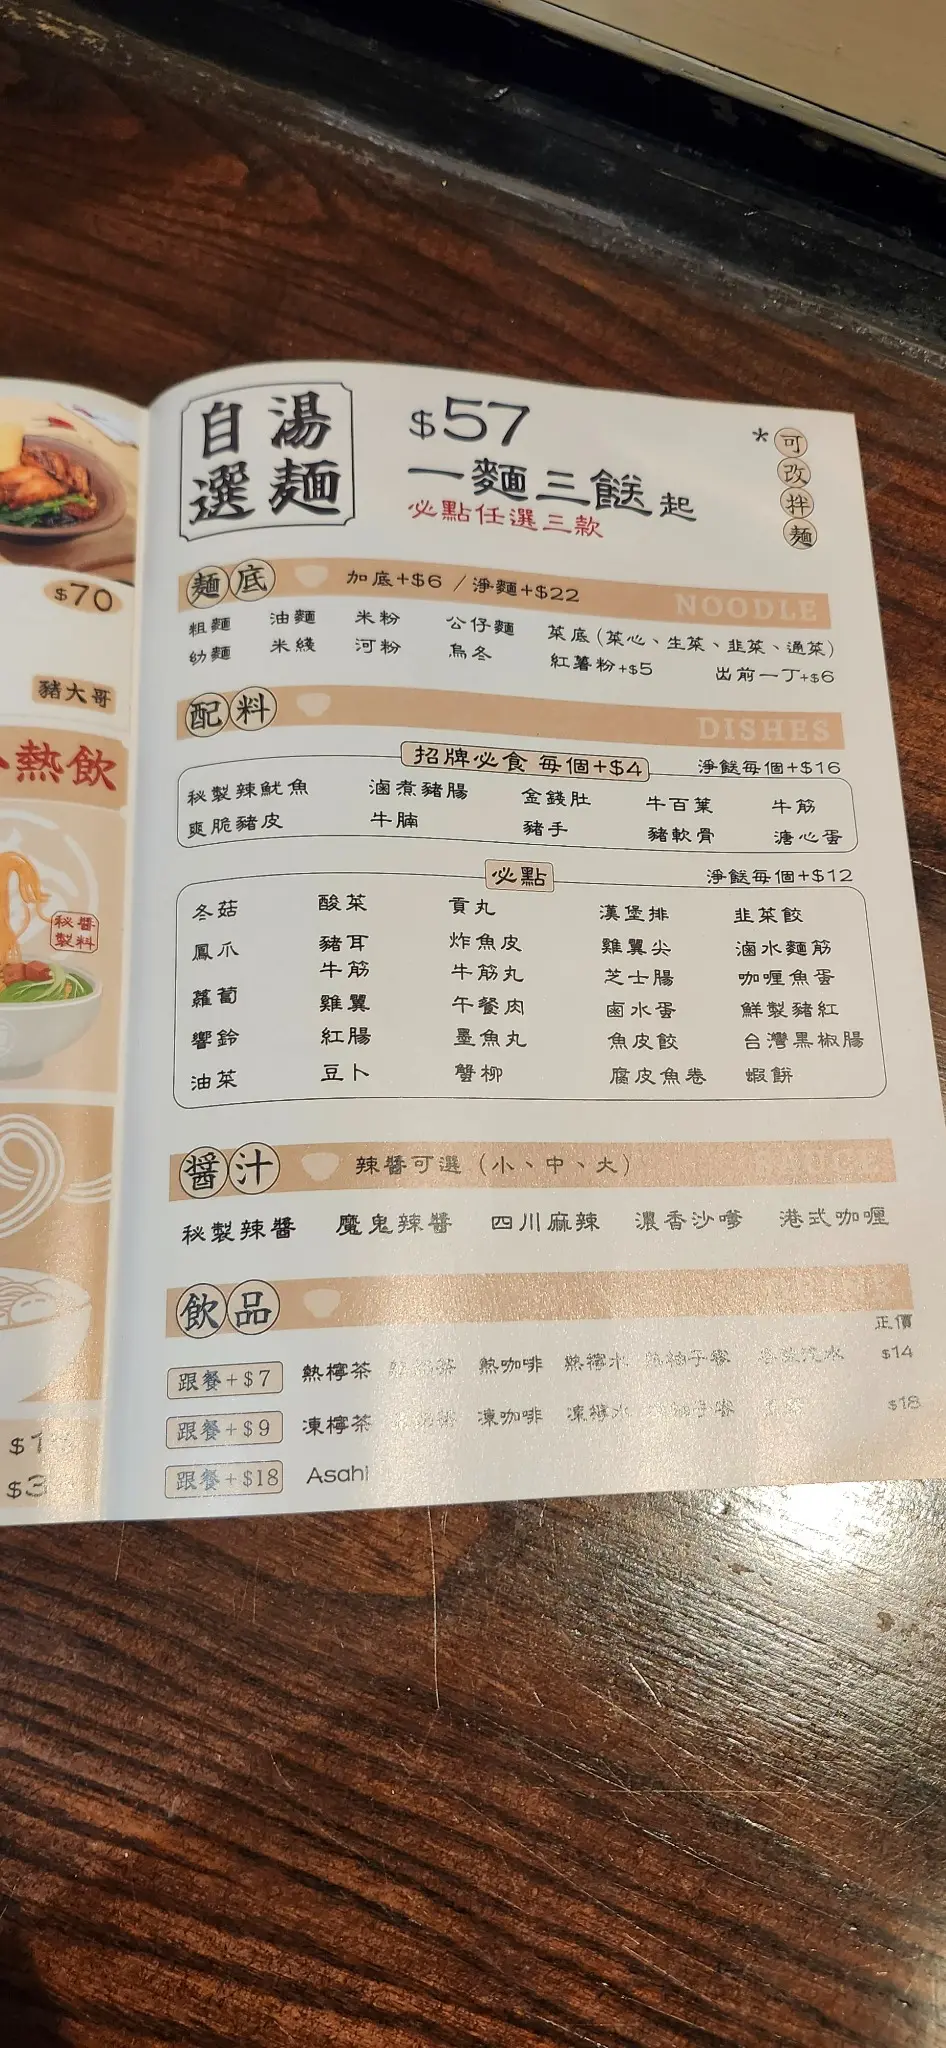 $70
豬大哥
熱飲
秘醬
製料
自選
湯麵
$57
一麵三餸起
必點任選三款
*可改拌麵
麵底 加底+$6 / 淨麵+$22 NOODLE
粗麵 油麵 米粉 公仔麵 菜底(菜心、生菜、韭菜、通菜)
幼麵 米綫 河粉 烏冬 紅薯粉+$5 出前一丁+$6
配料 DISHES
招牌必食 每個+$4 淨餸每個+$16
秘製辣魷魚 滷煮豬腸 金錢肚 牛百葉 牛筋
爽脆豬皮 牛腩 豬手 豬軟骨 溏心蛋
必點 淨餸每個+$12
冬菇 酸菜 貢丸 漢堡排 韭菜餃
鳳爪 豬耳 炸魚皮 雞翼尖 滷水麵筋
牛筋 牛筋丸 芝士腸 咖喱魚蛋
蘿蔔 雞翼 午餐肉 鹵水蛋 鮮製豬紅
響鈴 紅腸 墨魚丸 魚皮餃 台灣黑椒腸
油菜 豆卜 蟹柳 腐皮魚卷 蝦餅
醬汁 辣醬可選(小、中、大)
秘製辣醬 魔鬼辣醬 四川麻辣 濃香沙嗲 港式咖喱
飲品
正價
跟餐+$7 熱檸茶 熱咖啡 熱檸水 $14
跟餐+$9 凍檸茶 凍咖啡 凍檸水 $18
跟餐+$18 Asahi